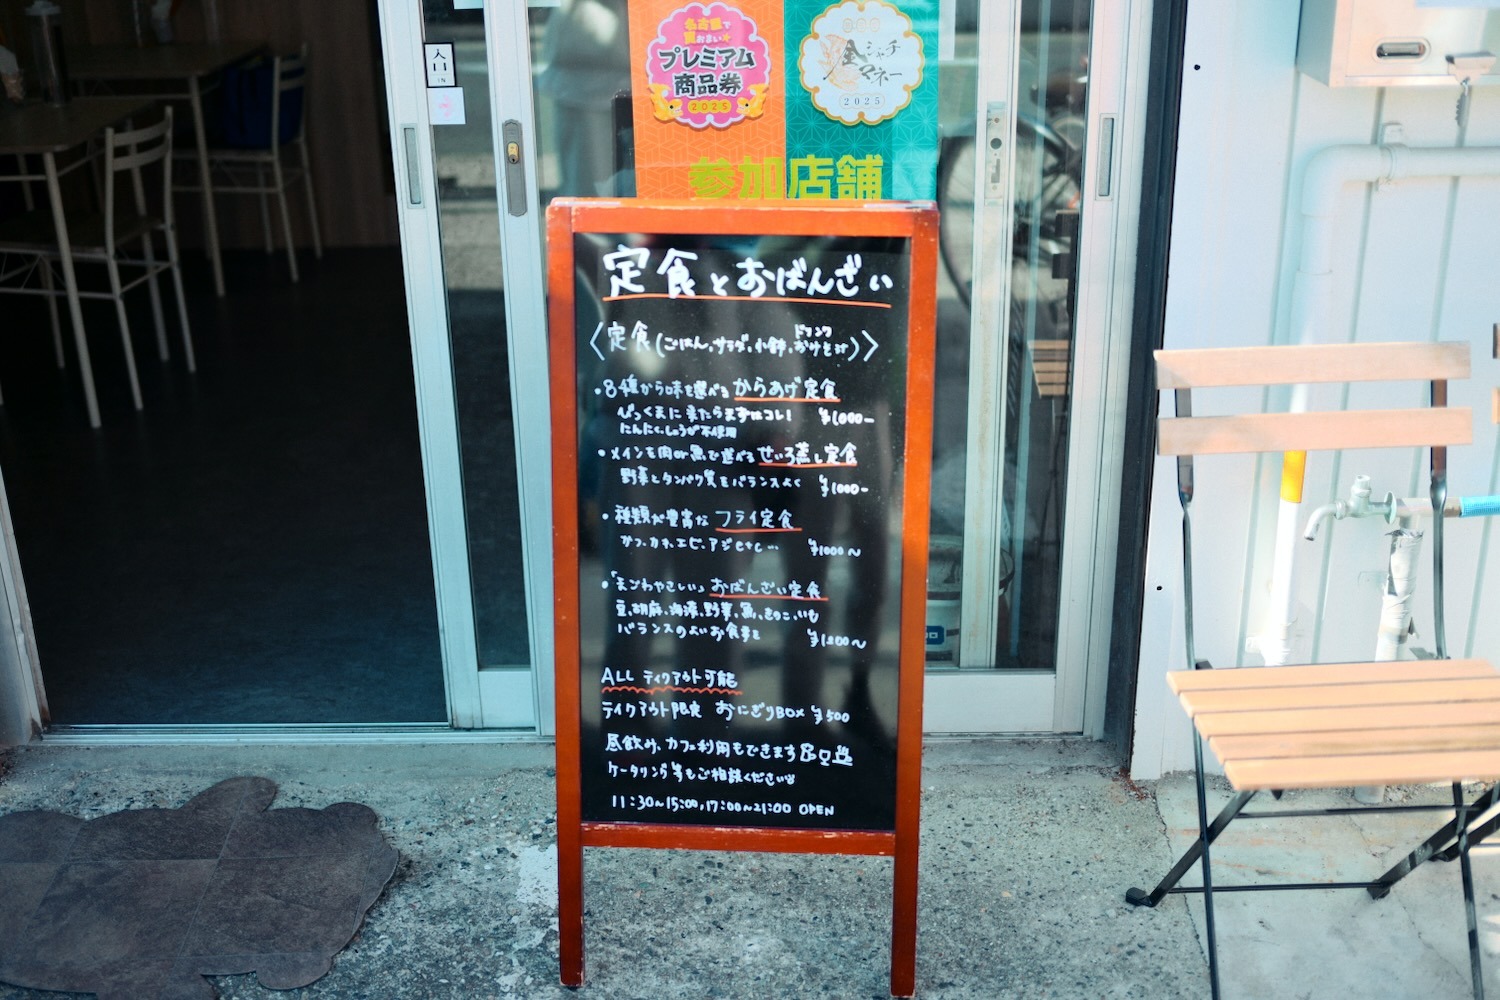 名古屋で
買おまい
プレミアム
商品券
2025
金シャチ
マネー
2025
参加店舗
入口
IN
定食とおばんざい
〈定食(ごはん、サラダ、小鉢、ドリンクおけと汁)〉
・8種から味を選べる からあげ定食
びっくまに来たらまずはコレ! ¥1000-
にんにく、しょうが不使用
・メインを肉or魚で選べる せいろ蒸し定食
野菜とタンパク質をバランスよく ¥1000-
・種類が豊富な フライ定食
カツ、カキ、エビ、アジetc… ¥1000〜
・「まごわやさしい」おばんざい定食
豆、胡麻、海藻、野菜、魚、きのこ、いも
バランスのよいお食事を ¥1200〜
ALL テイクアウト可能
テイクアウト限定 おにぎりBOX ¥500
昼飲み、カフェ利用もできます
ケータリング等もご相談ください
11:30〜15:00、17:00〜21:00 OPEN